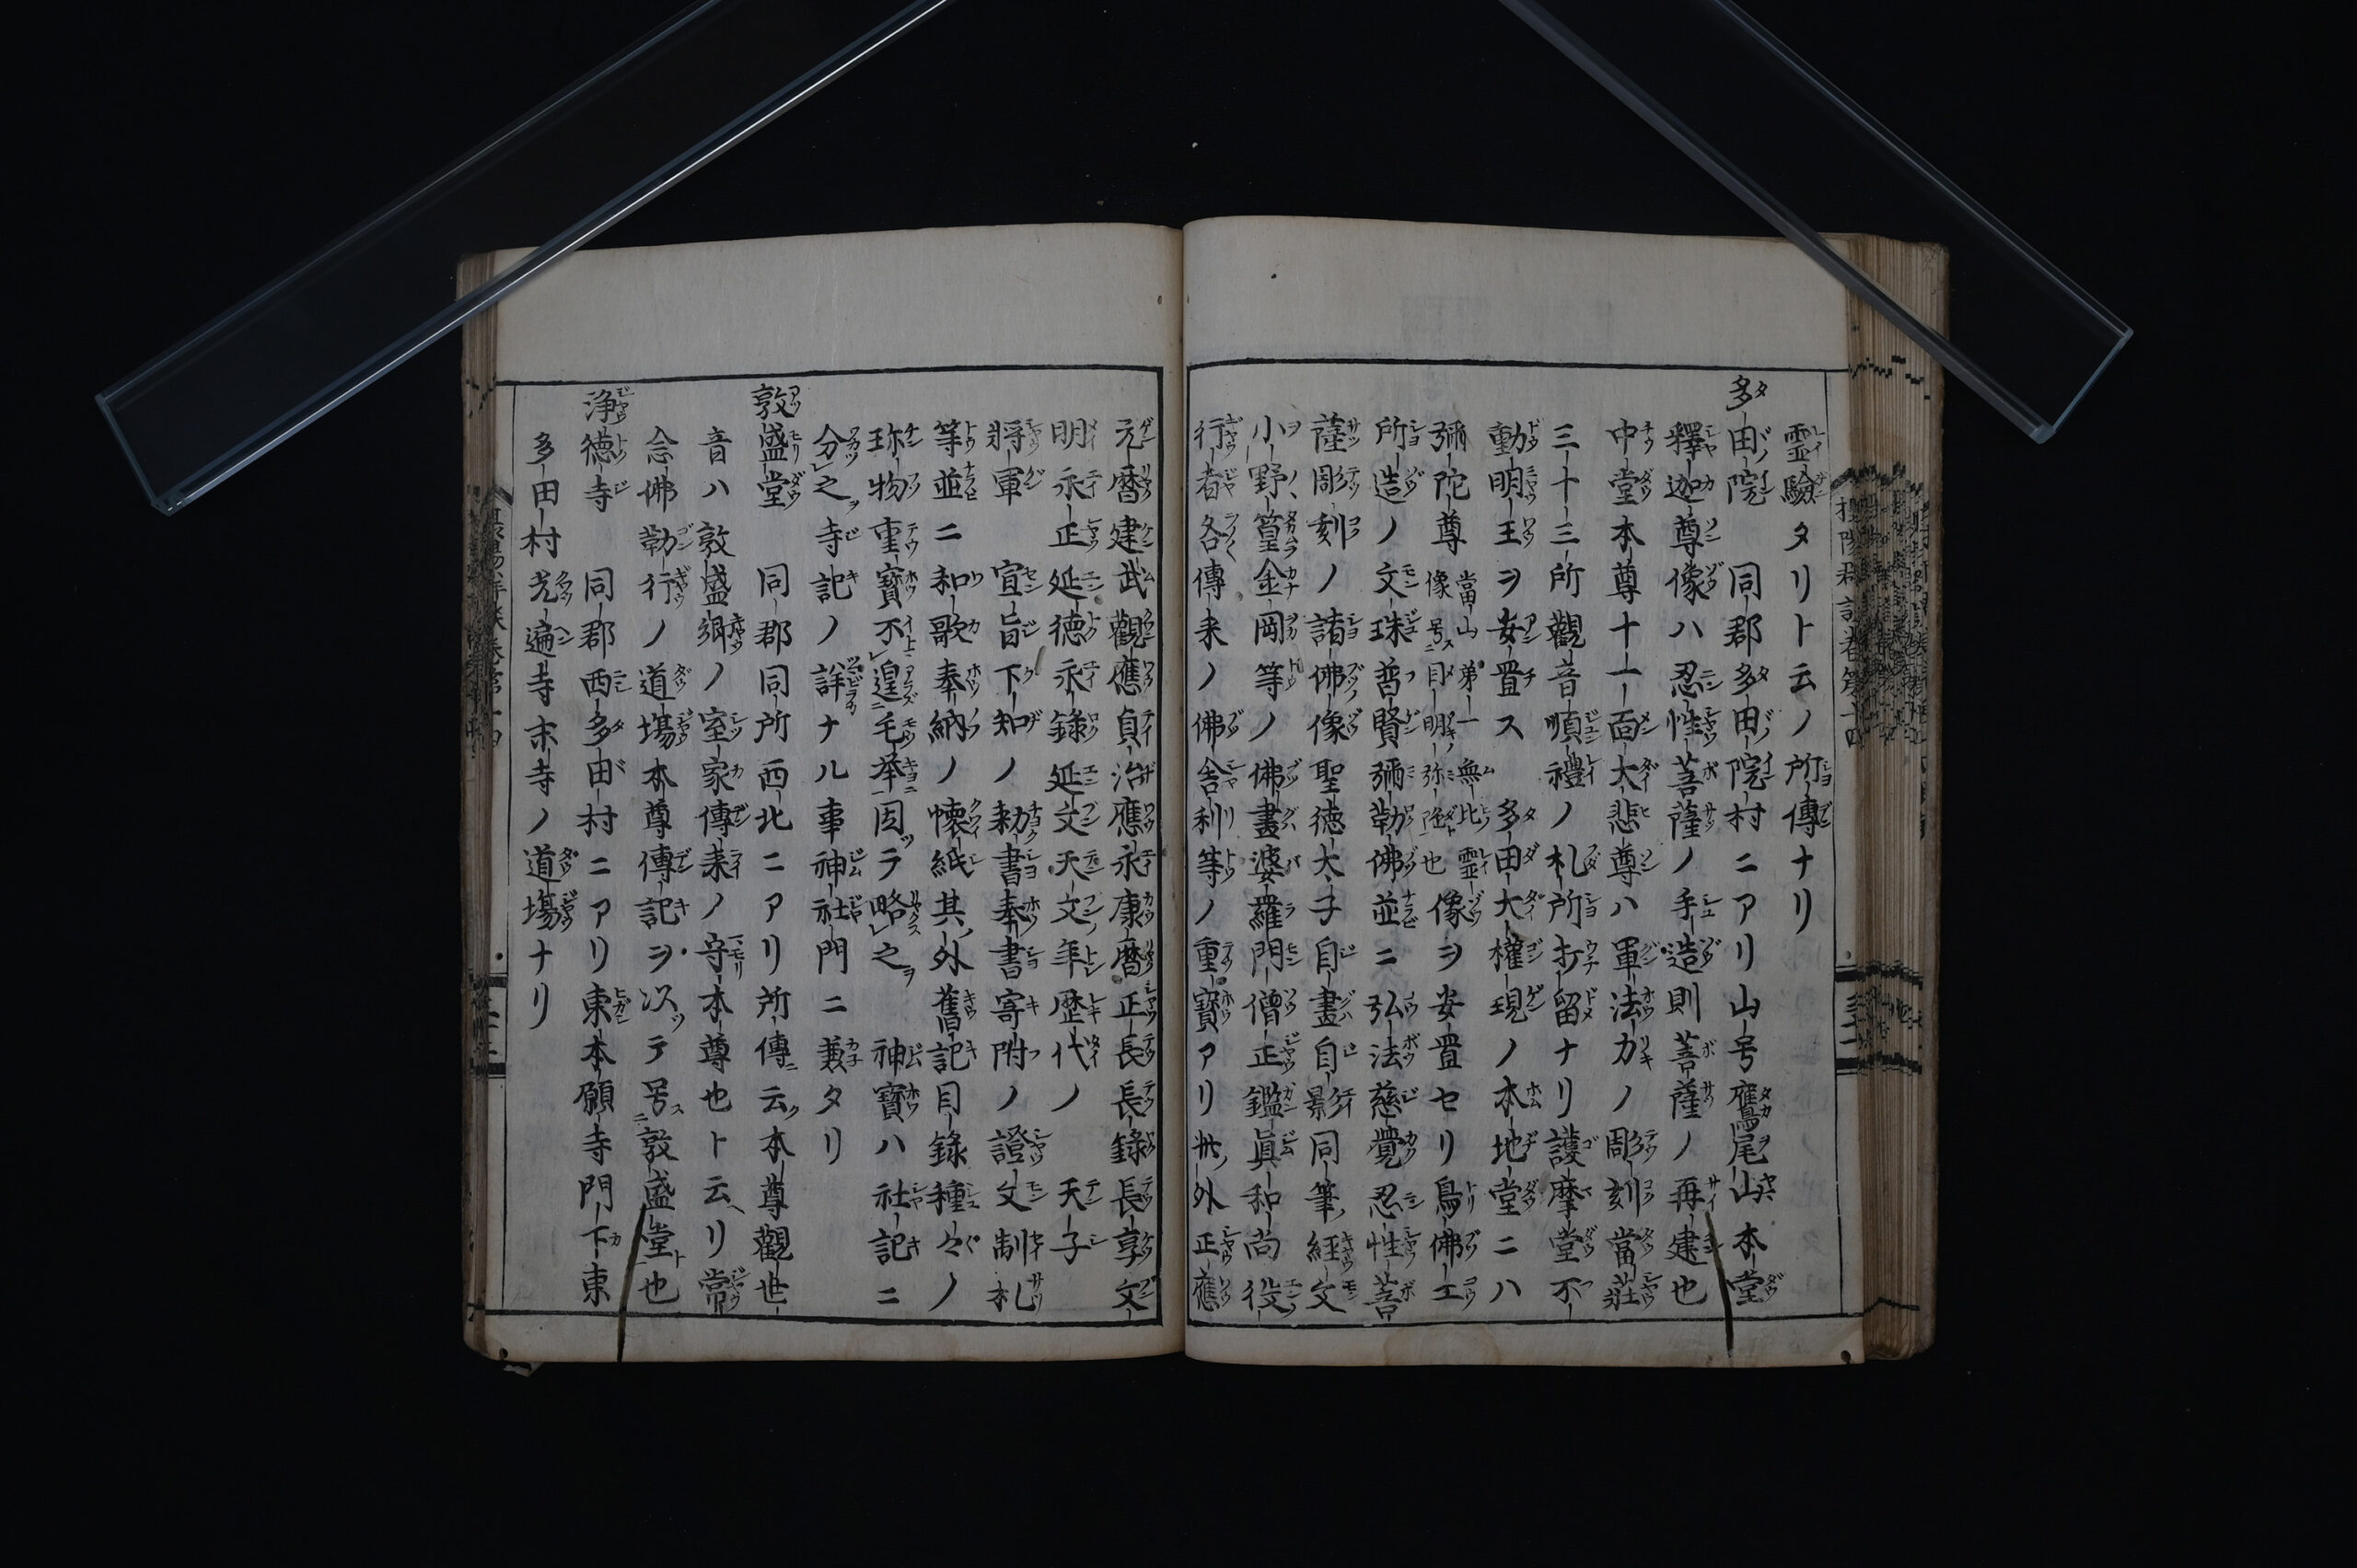 靈驗タリト云ノ所傳ナリ
多田院 同郡多田院村ニアリ山号鷹尾山本堂
釋迦尊像ハ忍性菩薩ノ手造則菩薩ノ再建也
中堂本尊十一面大悲尊ハ軍法力ノ彫刻當莊
三十三所觀音順禮ノ札所打留ナリ護摩堂不
動明王ヲ安置ス 多田大權現ノ本地堂ニハ
彌陀尊像 當山第一無比靈像ヲ安置セリ鳥佛工
号目明弥陀也
所造ノ文珠普賢彌勒佛並ニ弘法慈覺忍性菩
薩彫刻ノ諸佛像聖徳太子自畫自影同筆經文
小野篁金岡等ノ佛畫婆羅門僧正鑑眞和尚役
行者各傳来ノ佛舍利等ノ重寶アリ此外正應
元暦建武觀應貞治應永康暦正長長錄長享文
明永正延徳永錄延文天文年歴代ノ 天子
將軍 宣旨下知ノ勅書奉書寄附ノ證文制札
等並ニ和歌奉納ノ懐紙其外舊記目錄種々ノ
珎物重寶不遑毛挙因テ略之 神寶ハ社記ニ
分之寺記ノ詳ナル事神社門ニ兼タリ
敦盛堂 同郡同所西北ニアリ所傳云本尊觀世
音ハ敦盛郷ノ室家傳来ノ守本尊也ト云リ常
念佛勤行ノ道場本尊傳記ヲ以テ号敦盛堂也
浄徳寺 同郡西多田村ニアリ東本願寺門下東
多田村光遍寺末寺ノ道場ナリ